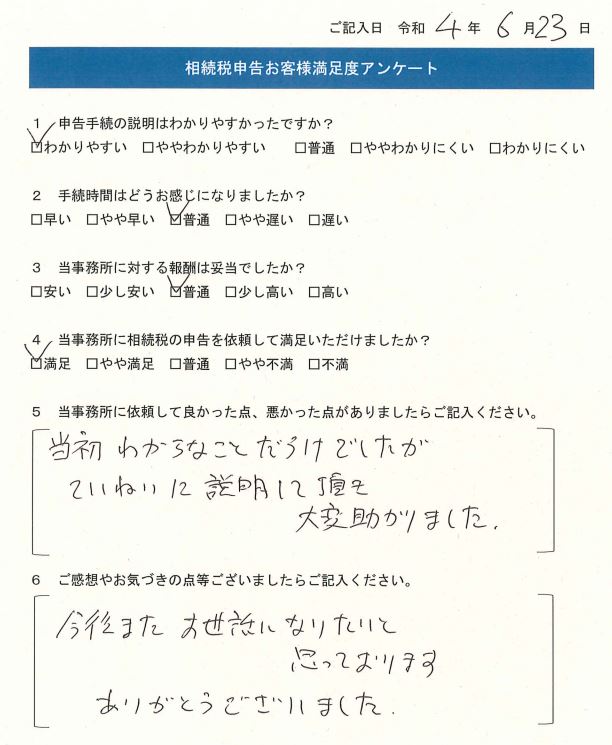 ご記入日 令和 4 年 6 月 23 日
相続税申告お客様満足度アンケート
1 申告手続の説明はわかりやすかったですか？
☑わかりやすい □ややわかりやすい □普通 □ややわかりにくい □わかりにくい
2 手続時間はどうお感じになりましたか？
□早い □やや早い ☑普通 □やや遅い □遅い
3 当事務所に対する報酬は妥当でしたか？
□安い □少し安い ☑普通 □少し高い □高い
4 当事務所に相続税の申告を依頼して満足いただけましたか？
☑満足 □やや満足 □普通 □やや不満 □不満
5 当事務所に依頼して良かった点、悪かった点がありましたらご記入ください。
当初 わからなことだらけでしたが
ていねいに説明して頂き
大変助かりました.
6 ご感想やお気づきの点等ございましたらご記入ください。
今後また お世話になりたいと
思っております
ありがとうございました.